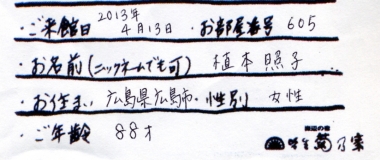 ・ご来館日 2013年4月13日 ・お部屋番号 605
・お名前(ニックネームでも可) 植本照子
・お住まい 広島県広島市・性別 女性
・ご年齢 88才
菊乃家